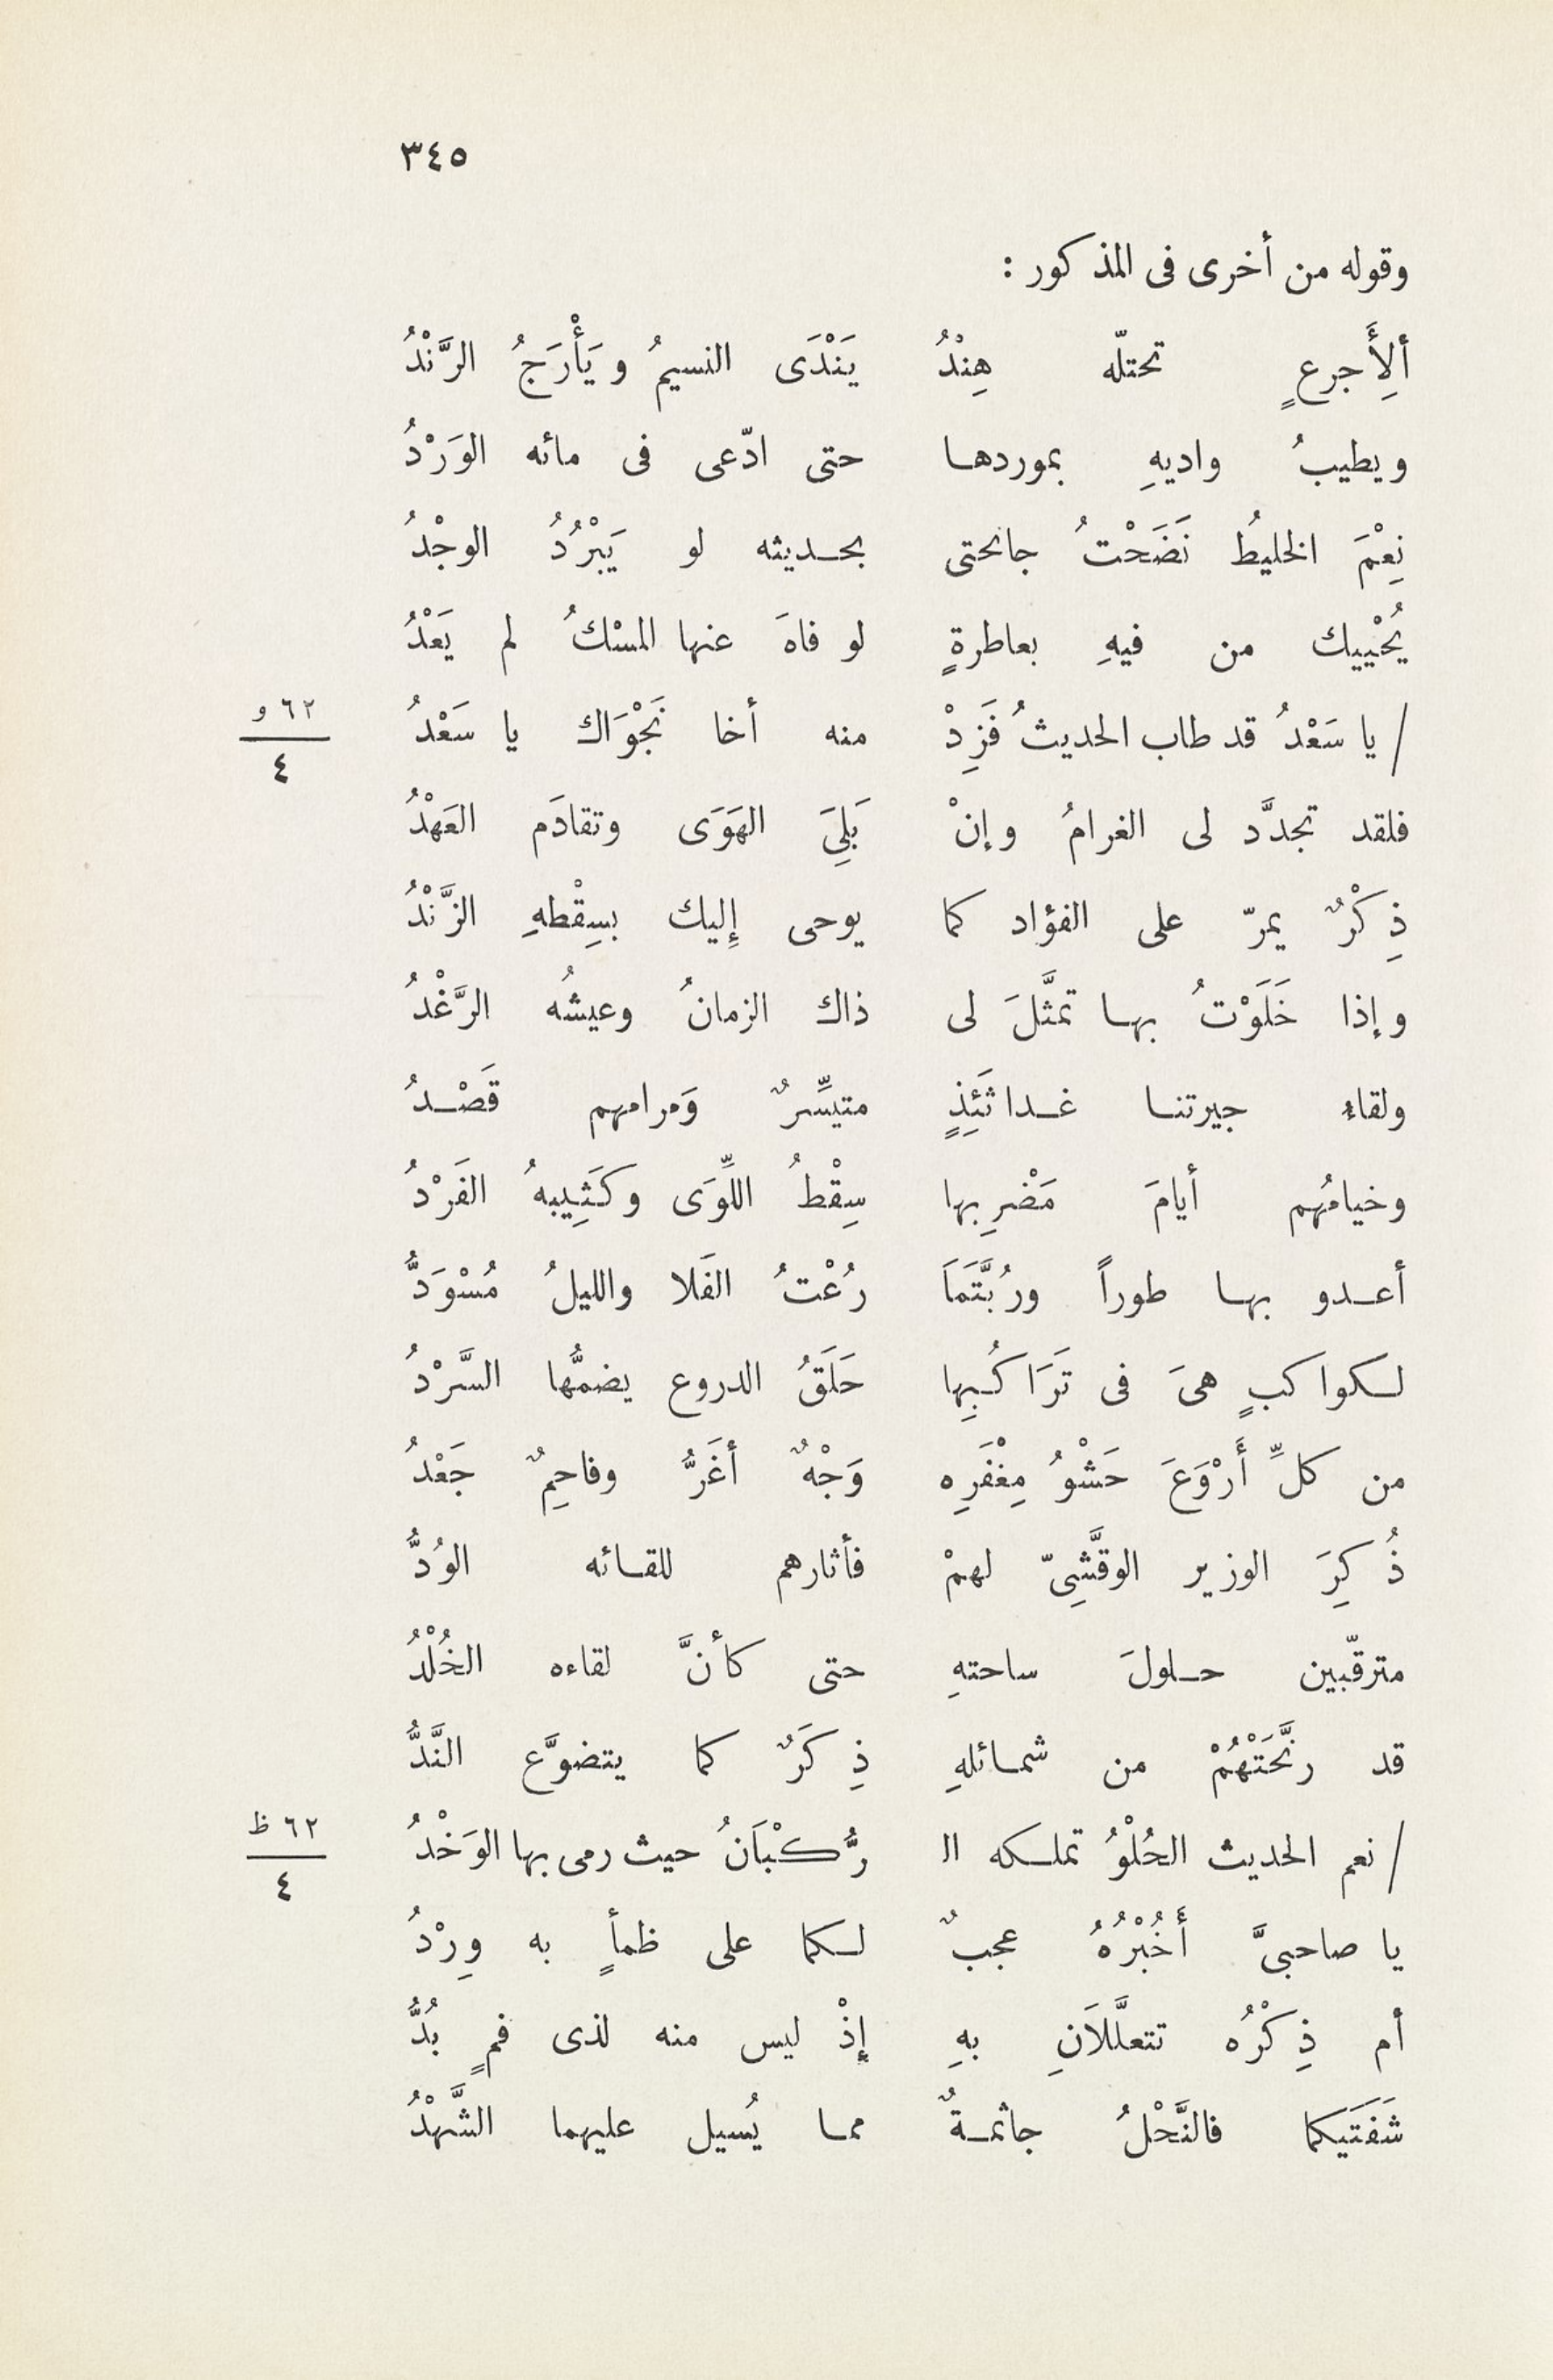 ٣٤٥
وقوله من أخرى فى المذكور :
ألِأَجرعٍ تحتلّه هِنْدُ يَنْدَى النسيمُ ويَأْرَجُ الرَّنْدُ
ويطيبُ واديهِ بموردها حتى ادّعى فى مائه الوَرْدُ
نِعْمَ الخليطُ نَضَحْتُ جانحتى بحديثه لو يَبْرُدُ الوجْدُ
يُحْييك من فيهِ بعاطرةٍ لو فاهَ عنها المسْكُ لم يَعْدُ
/ يا سَعْدُ قد طاب الحديثُ فَزِدْ منه أخا نَجْوَاك يا سَعْدُ
٦٢ و
٤
فلقد تجدَّد لى الغرامُ وإنْ بَلِىَ الهَوَى وتقادَم العَهْدُ
ذِكْرٌ يمرّ على الفؤاد كما يوحى إليك بسِقْطهِ الزَّنْدُ
وإذا خَلَوْتُ بها تمثَّلَ لى ذاك الزمانُ وعيشُه الرَّغْدُ
ولقاء جيرتنا غداتَئِذٍ متيسِّرٌ وَمرامهم قَصْدُ
وخيامُهم أيامَ مَضْرِبها سِقْطُ اللِّوَى وكَثِيبهُ الفَرْدُ
أعدو بها طوراً ورُبَّتَمَا رُعْتُ الفَلا والليلُ مُسْوَدُّ
لكواكبٍ هىَ فى تَرَاكُبِها حَلَقُ الدروع يضمُّها السَّرْدُ
من كلِّ أَرْوَعَ حَشْوُ مِغْفَرِه وَجْهٌ أغَرُّ وفاحِمٌ جَعْدُ
ذُكِرَ الوزير الوقَّشِىّ لهمْ فأثارهم للقائه الوُدُّ
مترقّبين حلولَ ساحتهِ حتى كأنَّ لقاءه الخُلْدُ
قد رنَّحَتْهُمْ من شمائلهِ ذِكَرٌ كما يتضوَّع النَّدُّ
/ نعم الحديث الحُلْوُ تملكه الرُّكْبَانُ حيث رمى بها الوَخْدُ
٦٢ ظ
٤
يا صاحبىَّ أَخُبْرُهُ عجبٌ لكما على ظمأٍ به وِرْدُ
أم ذِكْرُه تتعلَّلاَنِ بهِ إذْ ليس منه لذى فمٍ بُدُّ
شَفَتَيكما فالنَّحْلُ جاثمةٌ مما يُسيل عليهما الشَّهْدُ